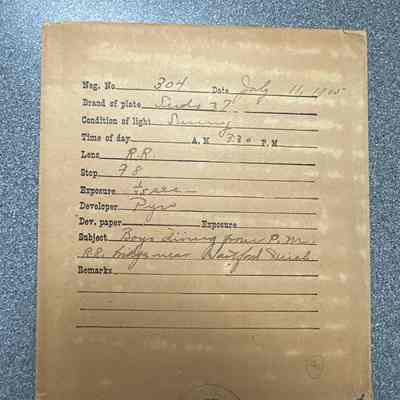 Neg. No. 304 Date July 11, 1905
Brand of plate Seeds 27
Condition of light Sunny
Time of day A. M 3:30 P. M
Lens R.R.
Stop F 8
Exposure 1/25 sec
Developer Pyro
Dev. paper Exposure
Subject Boys diving from P.M.
R.R. bridge near Hartford Mich.
Remarks